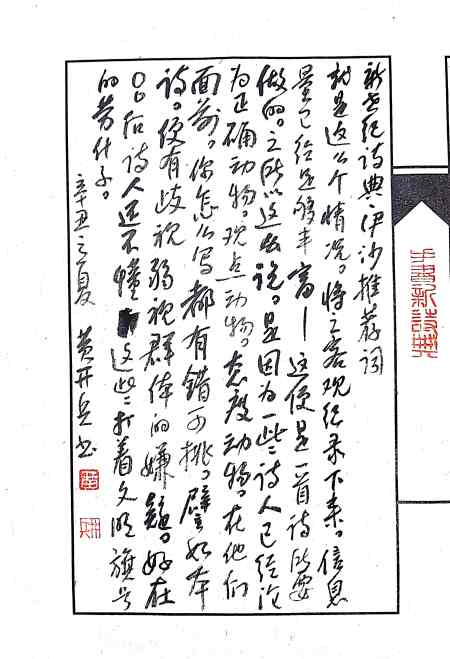 新世纪诗典·伊沙推荐词
就是这么个情况。将之客观纪录下来。信息
量已经足够丰富——这便是一首诗所要
做的。之所以这么说。是因为一些诗人已经沦
为正确动物。观点动物。态度动物。在他们
面前。你怎么写都有错可挑。譬如本
诗。便有歧视弱视群体的嫌疑。好在
00后诗人还不懂这些打着文明旗号
的劳什子。
辛丑之夏 黄开兵书
手书新诗典